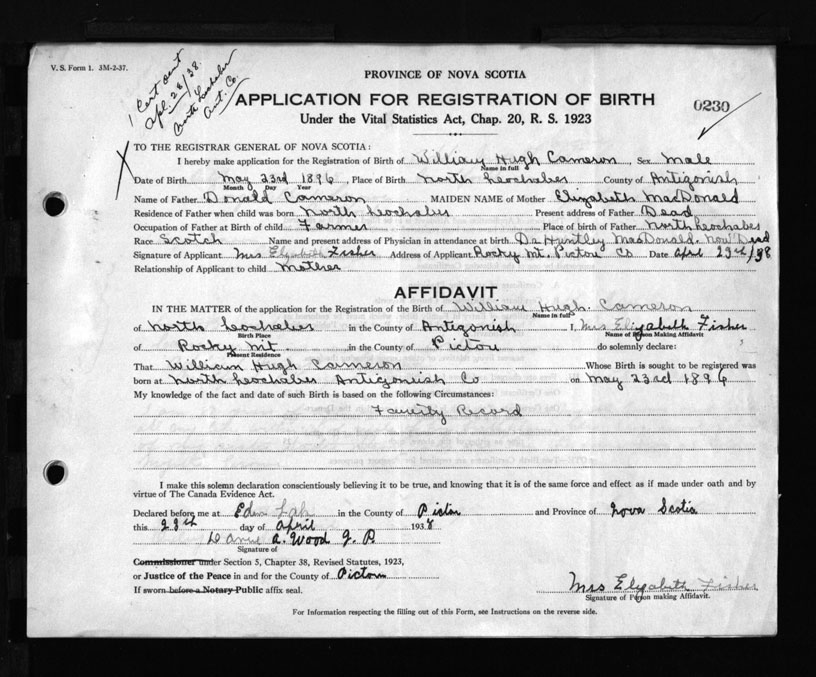 V. S. Form 1. 3M-2-37.
1 Cert sent
Apl. 28/38.
North Lochaber
Ant. Co.
PROVINCE OF NOVA SCOTIA
APPLICATION FOR REGISTRATION OF BIRTH
0230
Under the Vital Statistics Act, Chap. 20, R. S. 1923
TO THE REGISTRAR GENERAL OF NOVA SCOTIA:
I hereby make application for the Registration of Birth of William Hugh Cameron, Sex Male
Name in full
Date of Birth May 23rd 1896, Place of Birth North Lochaber County of Antigonish
Month Day Year
Name of Father Donald Cameron MAIDEN NAME of Mother Elizabeth MacDonald
Residence of Father when child was born North Lochaber Present address of Father Dead
Occupation of Father at Birth of child Farmer Place of birth of Father North Lochaber
Race Scotch Name and present address of Physician in attendance at birth Dr Huntley MacDonald. now Dead
Signature of Applicant Mrs Elizabeth Fisher Address of Applicant Rocky Mt. Pictou Co Date April 23rd/38
Relationship of Applicant to child Mother
AFFIDAVIT
IN THE MATTER of the application for the Registration of the Birth of William Hugh Cameron
Name in full
of North Lochaber in the County of Antigonish I, Mrs Elizabeth Fisher
Birth Place Name of Person Making Affidavit
of Rocky Mt. in the County of Pictou do solemnly declare:
Present Residence
That William Hugh Cameron Whose Birth is sought to be registered was
born at North Lochaber Antigonish Co on May 23rd 1896
My knowledge of the fact and date of such Birth is based on the following Circumstances:
Family Record
I make this solemn declaration conscientiously believing it to be true, and knowing that it is of the same force and effect as if made under oath and by
virtue of The Canada Evidence Act.
Declared before me at Eden Lake in the County of Pictou and Province of Nova Scotia
this day of April 1938
A. Wood J. P
Signature of
Commissioner under Section 5, Chapter 38, Revised Statutes, 1923,
or Justice of the Peace in and for the County of Pictou
If sworn before a Notary Public affix seal.
Mrs Elizabeth Fisher
Signature of Person making Affidavit.
For Information respecting the filling out of this Form, see Instructions on the reverse side.